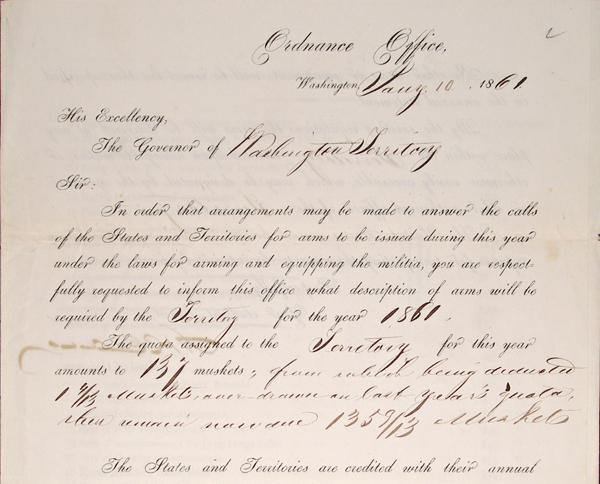 Ordnance Office,
Washington, Jany 10. 1861.
His Excellency,
The Governor of Washington Territory
Sir:
In order that arrangements may be made to answer the calls
of the States and Territories for arms to be issued during this year
under the laws for arming and equipping the militia, you are respect-
fully requested to inform this office what description of arms will be
required by the Territory for the year 1861.
The quota assigned to the Territory for this year
amounts to 137 muskets; from which being deducted
1 4/13 Muskets, over-drawn on last year's quota,
there remain now due 135 9/13 Muskets
The States and Territories are credited with their annual